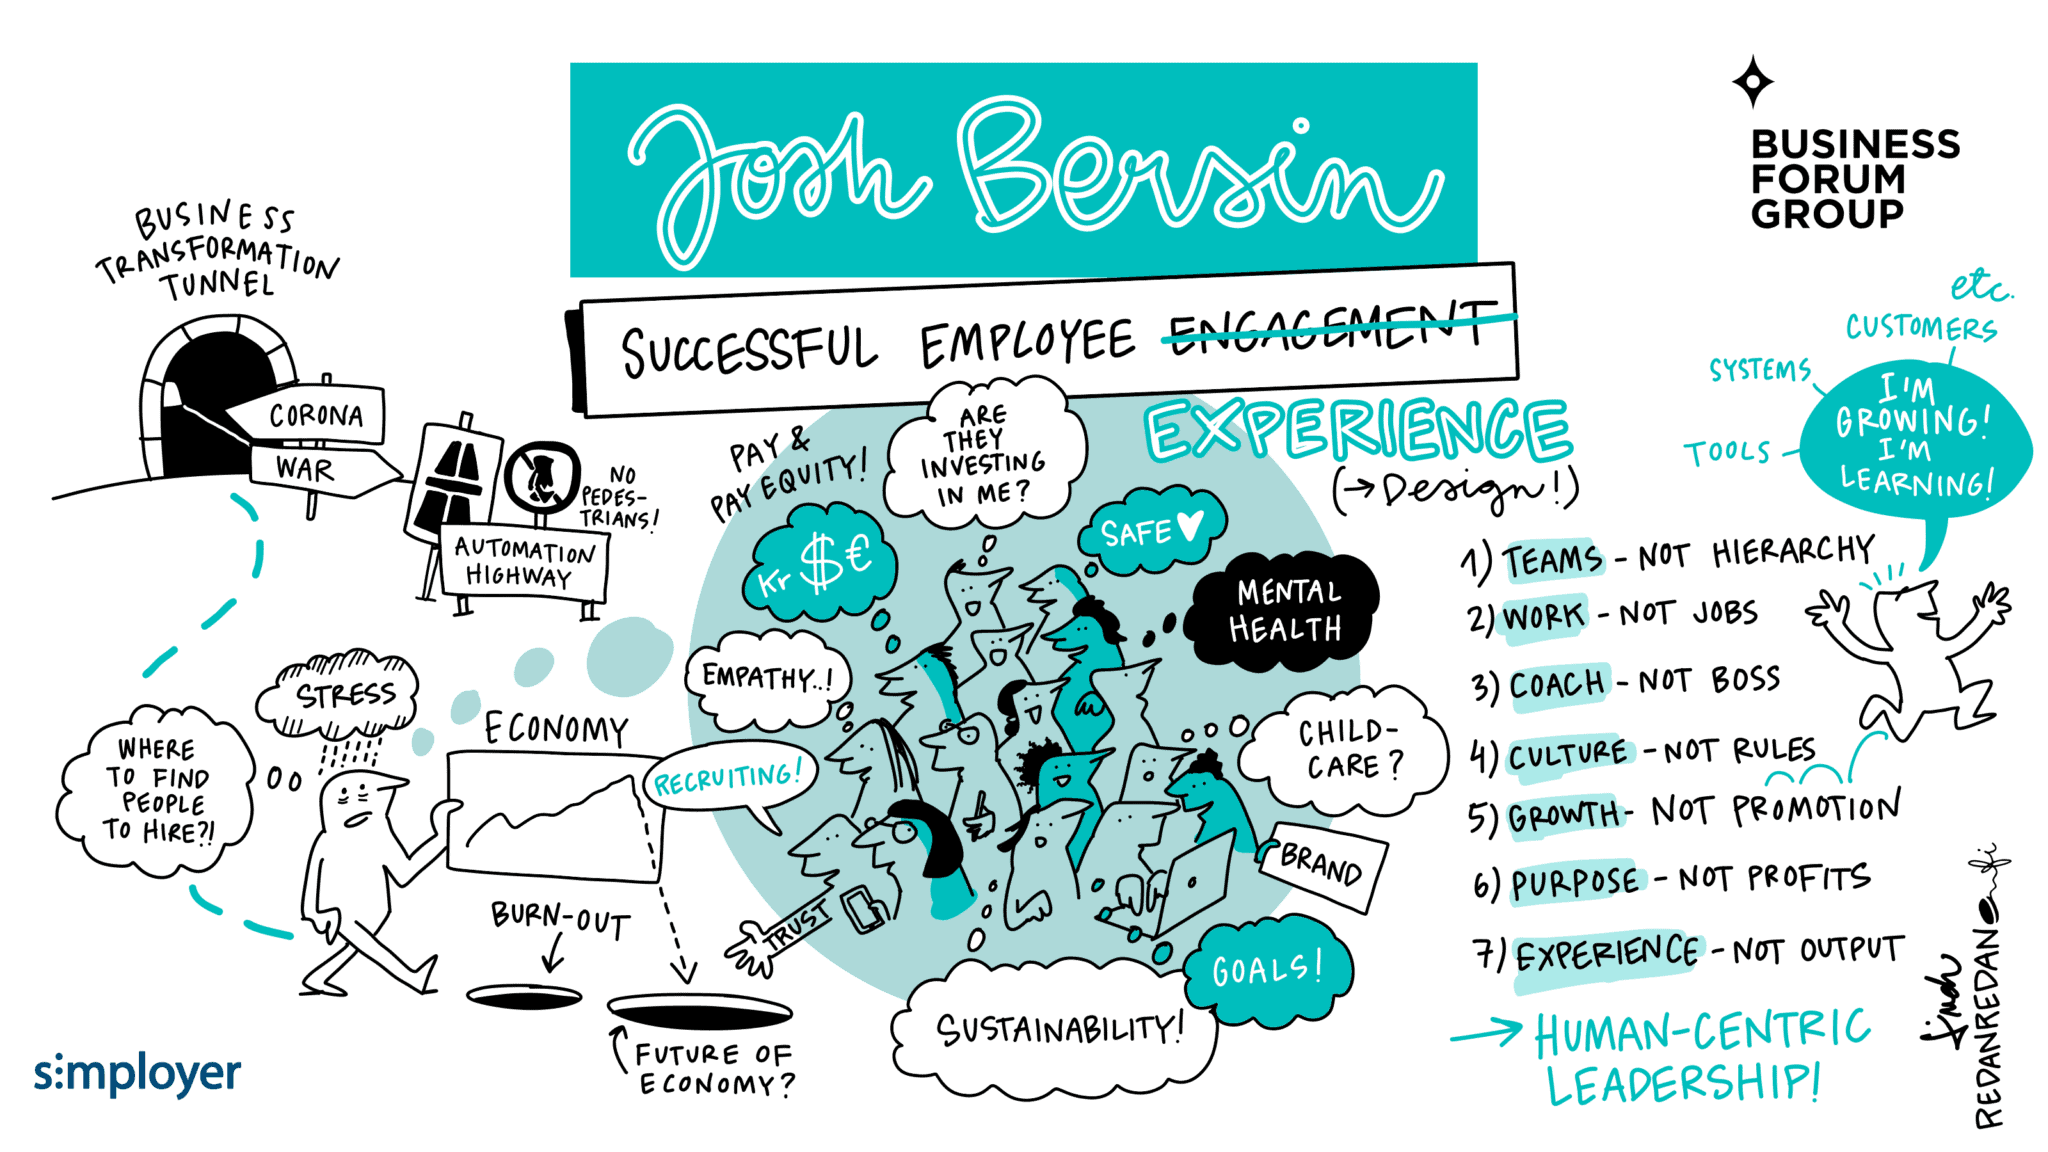 Josh Bersin
BUSINESS
FORUM
GROUP
SUCCESSFUL EMPLOYEE ENGAGEMENT
EXPERIENCE
(→ Design!)
BUSINESS
TRANSFORMATION
TUNNEL
CORONA
WAR
NO
PEDES-
TRIANS!
AUTOMATION
HIGHWAY
STRESS
WHERE
TO FIND
PEOPLE
TO HIRE?!
ECONOMY
BURN-OUT
FUTURE OF
ECONOMY?
PAY &
PAY EQUITY!
Kr $ €
ARE
THEY
INVESTING
IN ME?
SAFE
MENTAL
HEALTH
EMPATHY..!
RECRUITING!
CHILD-
CARE?
BRAND
TRUST
GOALS!
SUSTAINABILITY!
etc.
CUSTOMERS
SYSTEMS
TOOLS
I'M
GROWING!
I'M
LEARNING!
1) TEAMS - NOT HIERARCHY
2) WORK - NOT JOBS
3) COACH - NOT BOSS
4) CULTURE - NOT RULES
5) GROWTH - NOT PROMOTION
6) PURPOSE - NOT PROFITS
7) EXPERIENCE - NOT OUTPUT
→ HUMAN-CENTRIC
LEADERSHIP!
s:mployer
REDANREDAN